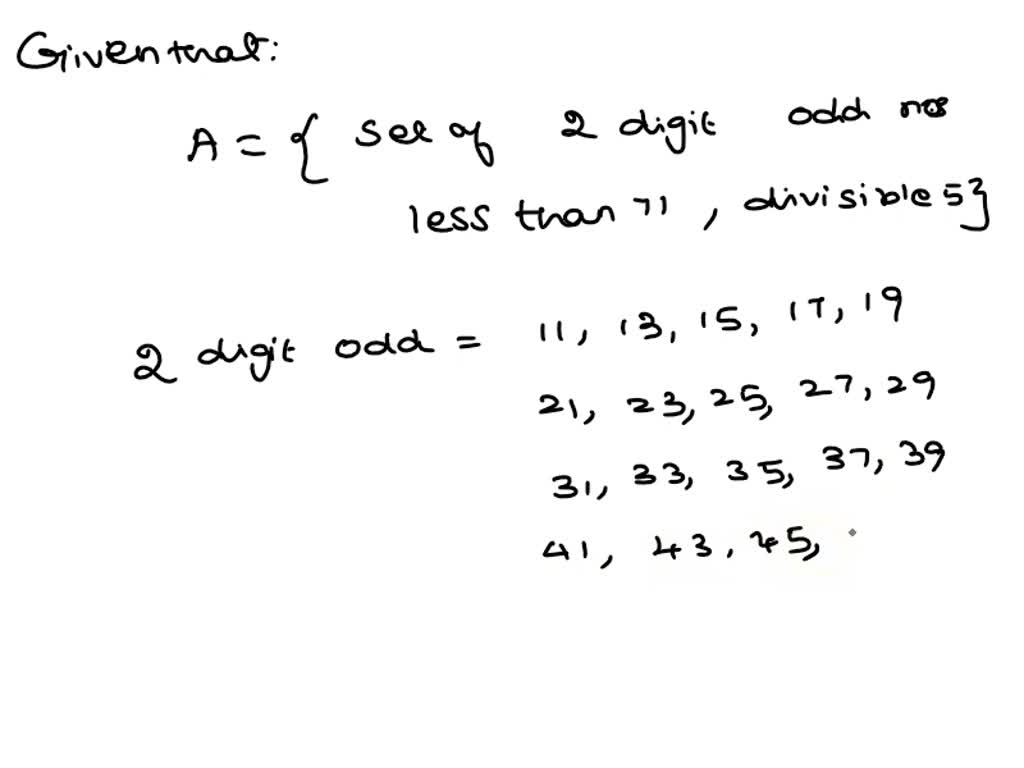 Given that:
A = { Set of 2 digit odd nos
less than 71 , divisible 5}
2 digit odd = 11, 13, 15, 17, 19
21, 23, 25, 27, 29
31, 33, 35, 37, 39
41, 43, 45,